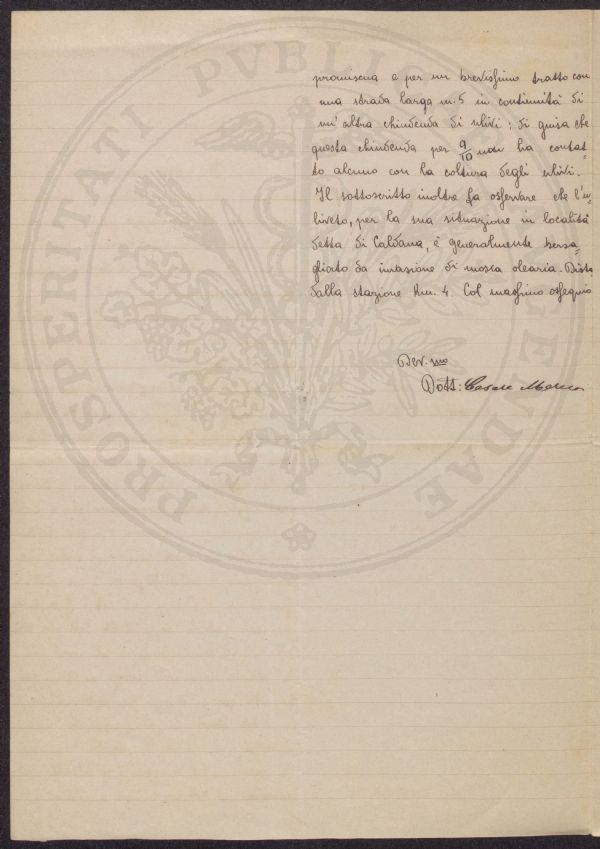 PROSPERITATI PVBLICAE AVGENDAE
promiscua e per un brevissimo tratto con
una strada larga m. 5 in continuità di
un'altra chiudenda di ulivi; di guisa che
questa chiudenda per 9/10 non ha contat=
to alcuno con la coltura degli ulivi.
Il sottoscritto inoltre fa osservare che l'u=
liveto, per la sua situazione in località
detta di Caldana, è generalmente bersa=
gliato da invasione di mosca olearia. Dista
dalla stazione Km. 4. Col massimo ossequio
Dev.mo
Dott: Cesare